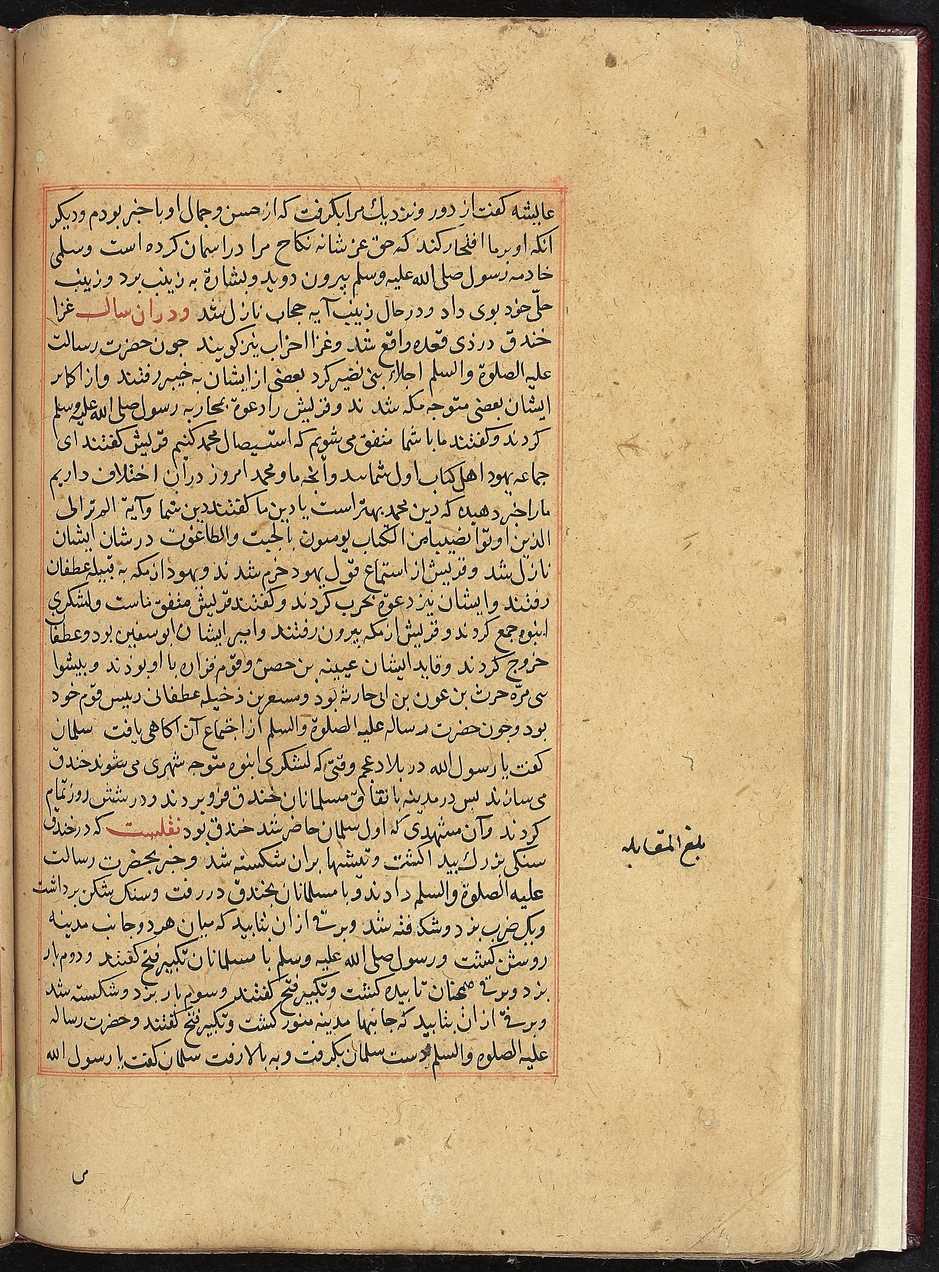 عایشه کفت از دور ونزدیك مرا بکرفت که از حسن وجمال او باخبر بودم ودیکر
انکه او برما افتخار کند که حق عز شانه نکاح مرا در اسمان کرده است وسلمی
خادمه رسول صلی الله علیه وسلم بیرون دوید وبشارة به زینب برد وزینب
حلّی خود بوی داد ودر حال زینب آیه حجاب نازل شد ودران سال غزا
خندق در ذی قعده واقع شد وغزا احزاب نیز کویند جون حضرت رسالت
علیه الصلوة والسلم اجلاء بنی نضیر کرد بعضی از ایشان به خیبر رفتند واز اکابر
ایشان بعضی متوجه مکه شدند وقریش را دعوة بمحاربه رسول صلی الله علیه وسلم
کردند وکفتند ما با شما متفق می شویم که استیصال محمد کنیم قریش کفتند ای
جماعه یهود اهل کتاب اول شمایید وآنجه ما ومحمد امروز دران اختلاف داریم
مارا خبر دهید که دین محمد بهتر است یا دین ما کفتند دین شما وآیة الم تر الی
الذین اوتوا نصیبا من الکتاب یومنون بالجبت والطاغوت در شان ایشان
نازل شد وقریش از استماع قول یهود خرم شدند ویهود از مکه به قبیله غطفان
رفتند وایشان نیز دعوة بحرب کردند وکفتند قریش متفق ماست ولشکری
انبوه جمع کردند وقریش از مکه بیرون رفتند وامیر ایشان ابو سفین بود وغطفان
خروج کردند وقاید ایشان عیینه بن حصن وقوم فزاره با او بودند وپیشوا
بنی مرّه حرث بن عوف بن ابی حارثه بود ومسعر بن دخیله غطفانی رییس قوم خود
بود وجون حضرت رساله علیه الصلوة والسلم از اجتماع آن اکاهی یافت سلمان
کفت یا رسول الله در بلاد عجم وقتی که لشکری انبوه متوجه شهری می شوند خندق
می سازند پس در مدینه باتفاق مسلمانان خندق فرو بردند ودر شش روز تمام
کردند وآن مشهدی که اول سلمان حاضر شد خندق بود نقلست که در خندق
سنکی بزرك پید اکشت وتیشها بران شکسته شد وخبر بحضرت رسالت
علیه الصلوة والسلم دادند وبا مسلمانان بخندق در رفت وسنك شکن برداشت
ویك ضرب بزد وشکافته شد وبرقی از ان بتابید که میان هر دو جانب مدینه
روشن کشت ورسول صلی الله علیه وسلم با مسلمانان تکبیر فتح کفتند ودوم بار
بزد وبرقی همجنان تابیده کشت وتکبیر فتح کفتند وسوم بار بزد وشکسته شد
وبرقی از ان بتابید که جانبها مدینه منور کشت وتکبیر فتح کفتند وحضرت رساله
علیه الصلوة والسلم دست سلمان بکرفت وبه بالا رفت سلمان کفت یا رسول الله
بلغ المقابله